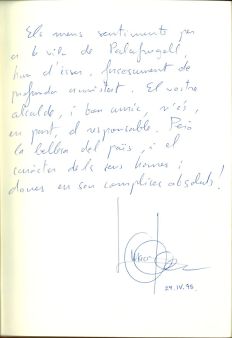 Els meus sentiments per
a la vila de Palafrugell,
han d'ésser, forçosament de
profunda amistat. El vostre
alcalde, i bon amic, n'és,
en part, el responsable. Però
la bellesa del país, i el
caràcter dels seus homes i
dones en són complices absoluts!
29.IV.95